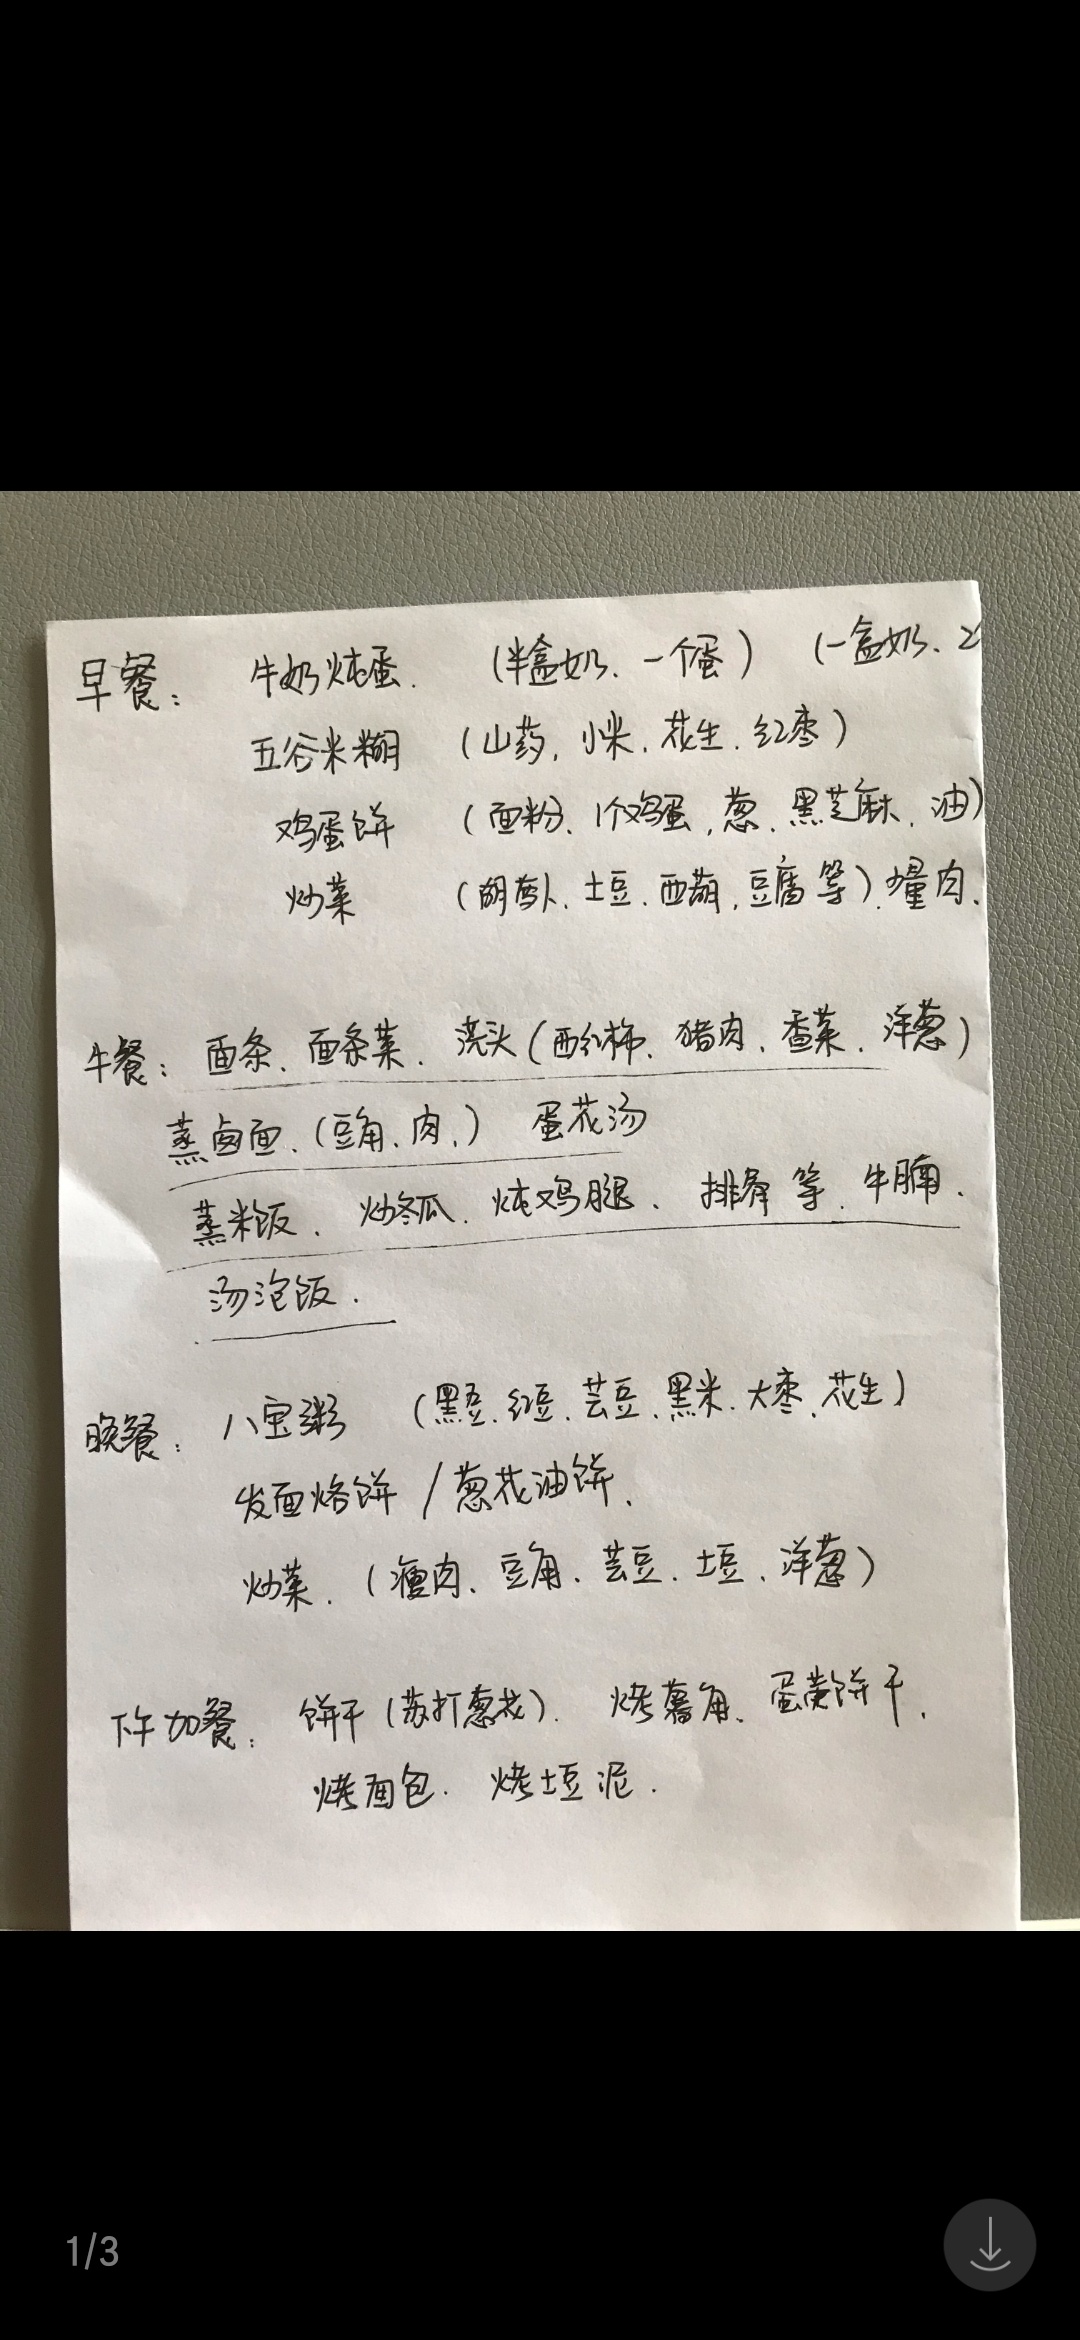 早餐： 牛奶炖蛋. （半盒奶、一个蛋） （一盒奶、2
五谷米糊 （山药, 小米、花生、红枣）
鸡蛋饼 （面粉、1个鸡蛋, 葱、黑芝麻、油）
炒菜 （胡萝卜、土豆、西葫, 豆腐等）、少量肉、
午餐： 面条、面条菜、浇头（西红柿、猪肉、香菜、洋葱）
蒸卤面、（豆角、肉、） 蛋花汤
蒸米饭、 炒冬瓜、炖鸡腿、 排骨等、牛腩、
汤泡饭.
晚餐： 八宝粥 （黑豆、红豆、芸豆、黑米、大枣、花生）
发面烙饼 / 葱花油饼、
炒菜. （瘦肉、豆角、芸豆、土豆、洋葱）
下午加餐： 饼干（苏打葱花）、 烤薯角、蛋黄饼干,
烤面包. 烤土豆泥.
1/3